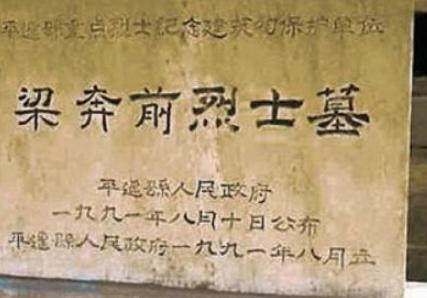 平遥縣重点烈士記念建筑物保护单位
梁奔前烈士墓
平遥縣人民政府
一九九一年八月十日公布
平遥縣人民政府一九九一年八月立